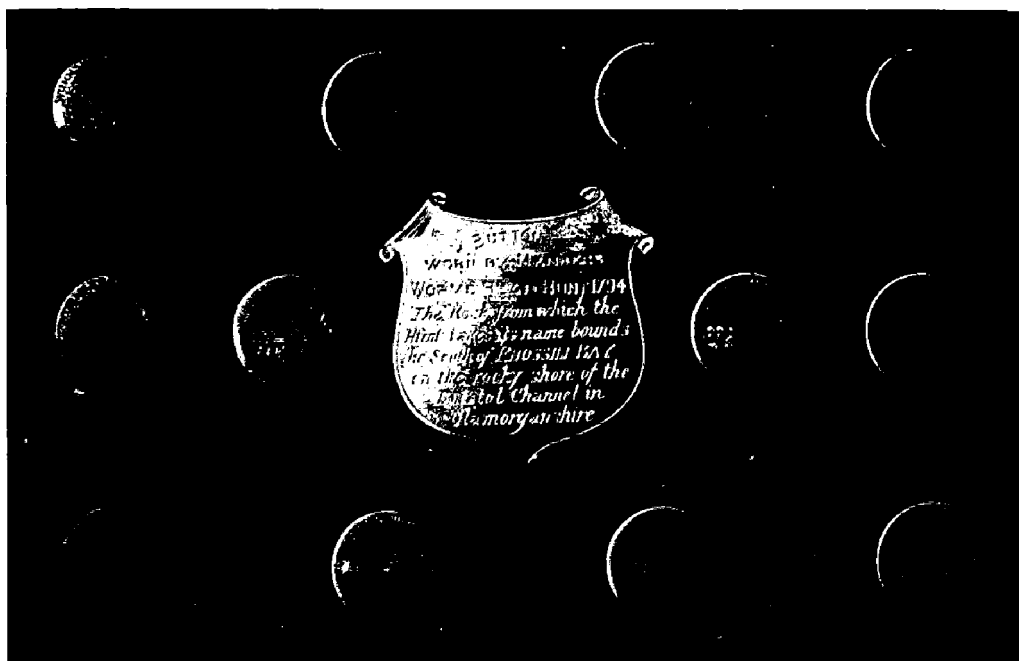 BUTTON
WORN BY MEMBERS
WORMS HEAD HUNT 1794
The Rock from which the
Hunt takes its name bounds
the South of RHOSSILI BAY
on the rocky shore of the
Bristol Channel in
Glamorganshire